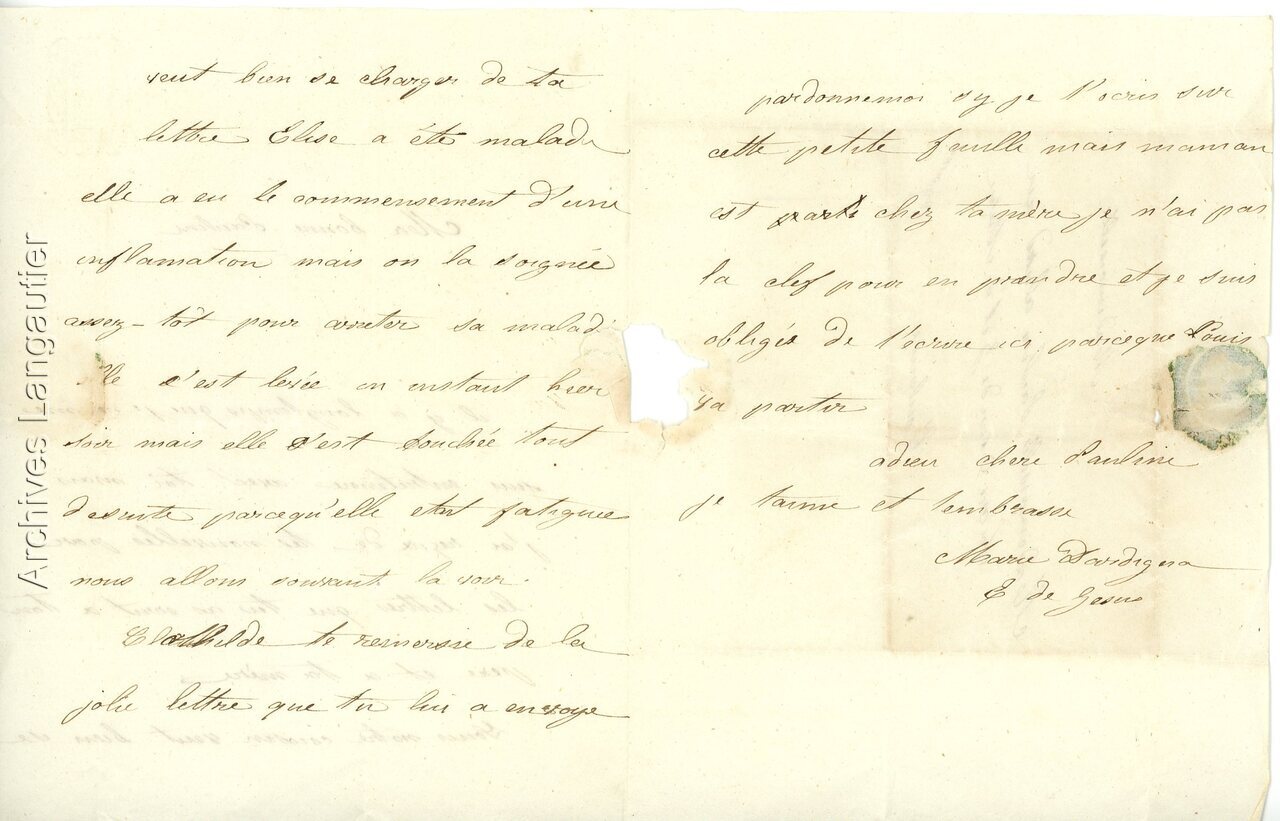 veut bien se charger de ta
lettre Elise a été malade
elle a eu le commensement d'une
inflamation mais on la soignée
assez-tôt pour arreter sa maladi
Elle s'est levée un instant hier
soir mais elle s'est couchée tout
desuite parcequ'elle etat fatiguée
nous allons souvant la voir.
Clothilde te remersie de la
jolie lettre que tu lui a envoye
pardonnemoi sy je t'ecris sur
cette petite feuille mais maman
est parti chez ta mère je n'ai pas
la clef pour en prandre et je suis
obligés de t'ecrire ici parceque Louis
va partir
adieu chere Pauline
je taime et tembrasse
Marie Dardigna
E de Jesus
Archives Langautier